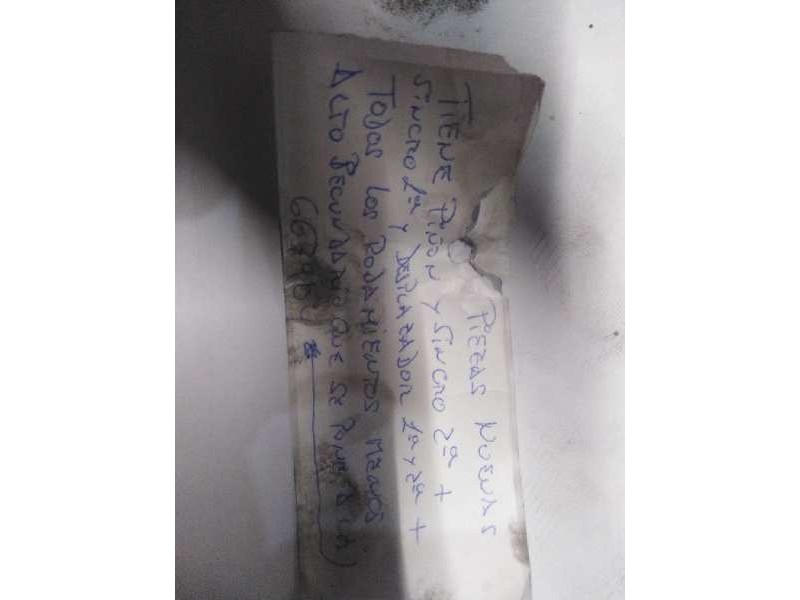 PIEZAS NUEVAS
TIENE PIÑON Y SINCRO 2ª +
SINCRO 1ª Y DESPLAZADOR 1ª Y 2ª +
TODOS LOS RODAMIENTOS MENOS
ALTO SECUNDARIO QUE SE PONE